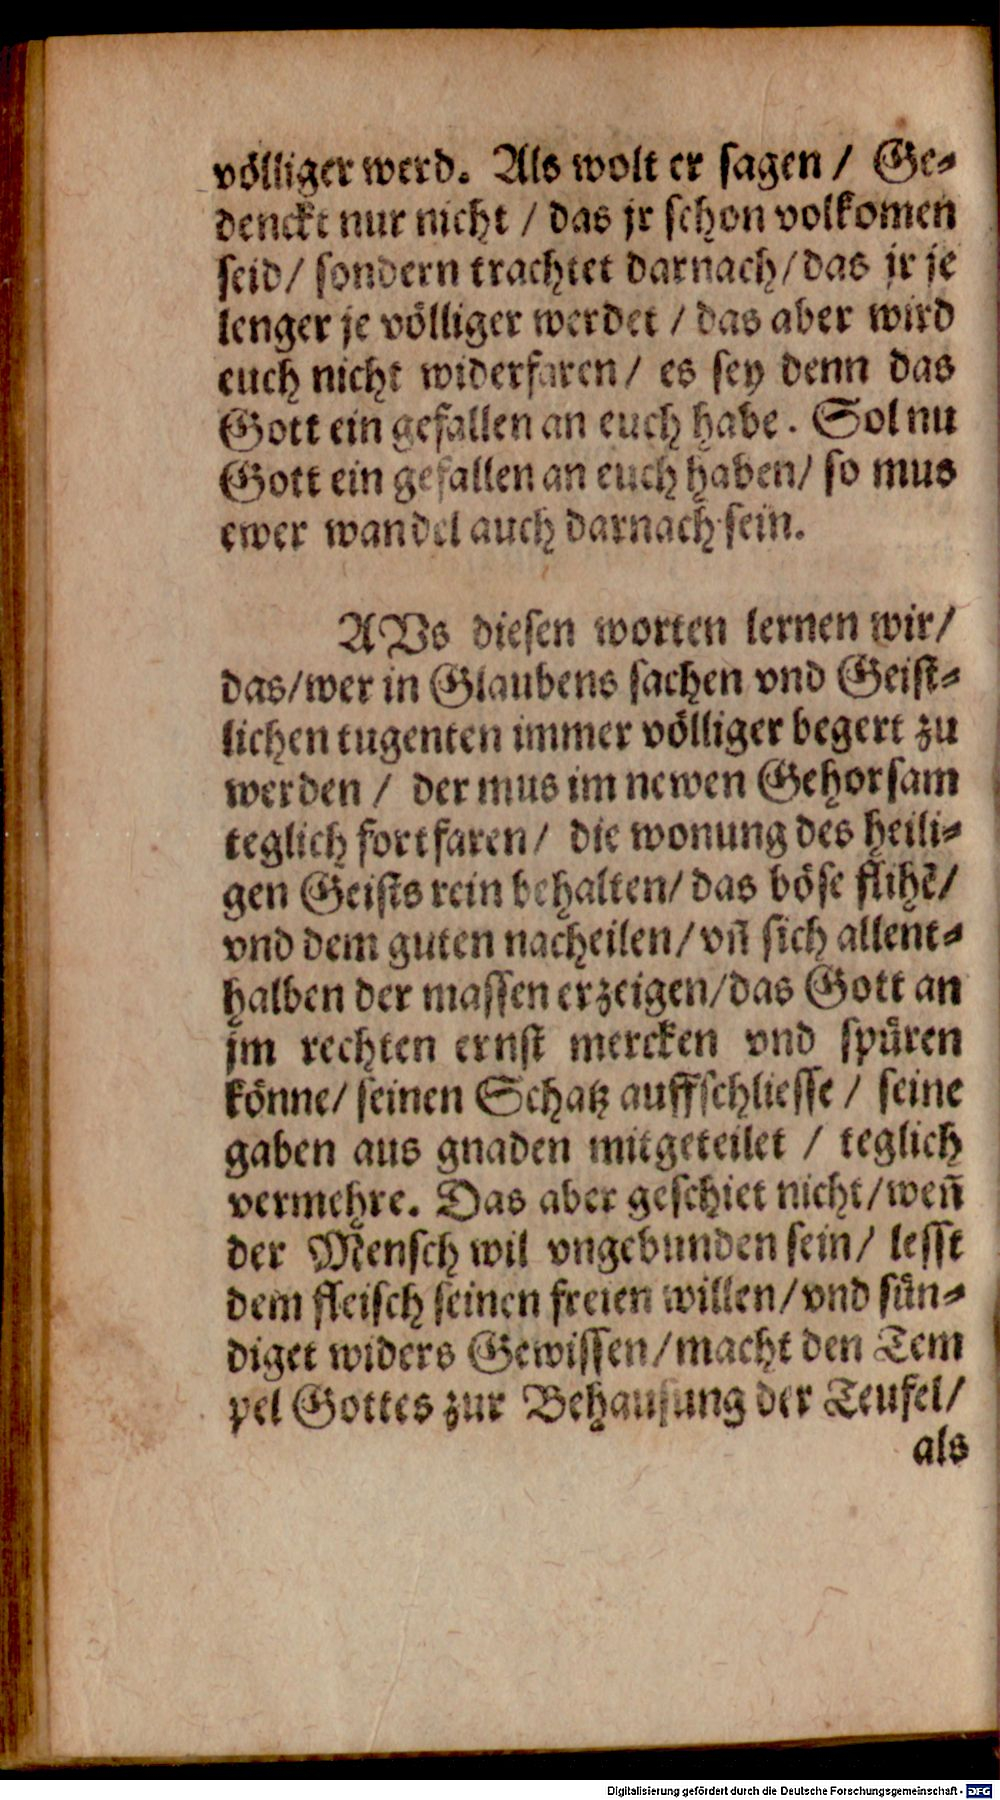 völliger werd. Als wolt er sagen / Ge-
denckt nur nicht / das jr schon volkomen
seid / sondern trachtet darnach / das jr je
lenger je völliger werdet / das aber wird
euch nicht widerfaren / es sey denn das
Gott ein gefallen an euch habe. Sol nu
Gott ein gefallen an euch haben / so mus
ewer wandel auch darnach sein.
AVs diesen worten lernen wir /
das / wer in Glaubens sachen vnd Geist-
lichen tugenten immer völliger begert zu
werden / der mus im newen Gehorsam
teglich fortfaren / die wonung des heili-
gen Geists rein behalten / das böse flihē /
vnd dem guten nacheilen / vn̄ sich allent-
halben der massen erzeigen / das Gott an
jm rechten ernst mercken vnd spüren
könne / seinen Schatz auffschliesse / seine
gaben aus gnaden mitgeteilet / teglich
vermehre. Das aber geschiet nicht / wen̄
der Mensch wil vngebunden sein / lesst
dem fleisch seinen freien willen / vnd sün-
diget widers Gewissen / macht den Tem
pel Gottes zur Behausung der Teufel /
als
Digitalisierung gefördert durch die Deutsche Forschungsgemeinschaft - DFG